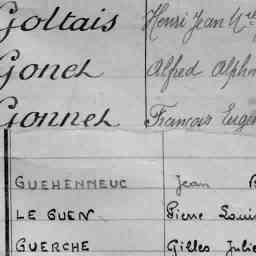 Goltais Henri Jean
Gonet Alfred Alph
Gonnet François Eugèn
GUEHENNEUC Jean
LE GUEN Pierre Louis
GUERCHE Gilles Julie